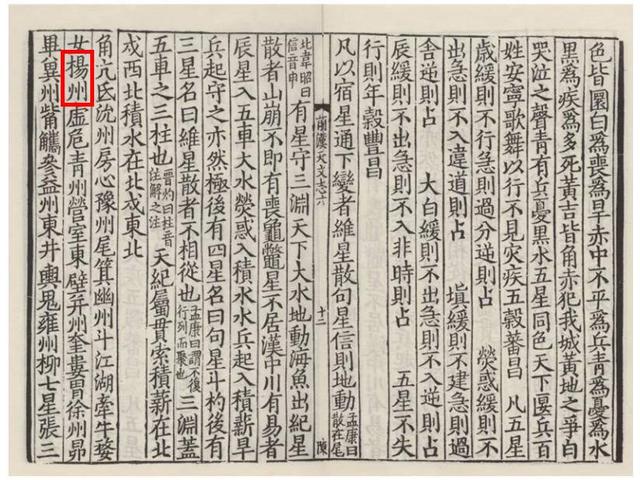 色皆圜白為喪為旱赤中不平為兵青為憂為水
黑為疾為多死黃吉皆角赤犯我城黃地之爭白
哭泣之聲青有兵憂黑水五星同色天下匽兵百
姓安寧歌舞以行不見災疾五穀蕃昌 凡五星
歳緩則不行急則過分逆則占 熒惑緩則不
出急則不入違道則占 塡緩則不建急則過
舍逆則占 大白緩則不出急則不入逆則占
辰緩則不出急則不入非時則占 五星不失
行則年穀豐昌
凡以宿星通下變者維星散句星信則地動孟康曰散在尾
前漢天文志六 十二 陳
北韋昭曰信音申有星守三淵天下大水地動海魚出紀星
散者山崩不即有喪龜鼈星不居漢中川有易者
辰星入五車大水熒惑入積水水兵起入積薪旱
兵起守之亦然極後有四星名曰句星斗杓後有
三星名曰維星散者不相從也孟康曰謂不復行列而聚也三淵蓋
五車之三柱也晉灼曰柱音注解之注天紀屬貫索積薪在北
戍西北積水在北戍東北
角亢氐沇州房心豫州尾箕幽州斗江湖牽牛婺
女楊州虛危青州營室東壁并州奎婁胃徐州昴
畢冀州觜觿參益州東井輿鬼雍州柳七星張三